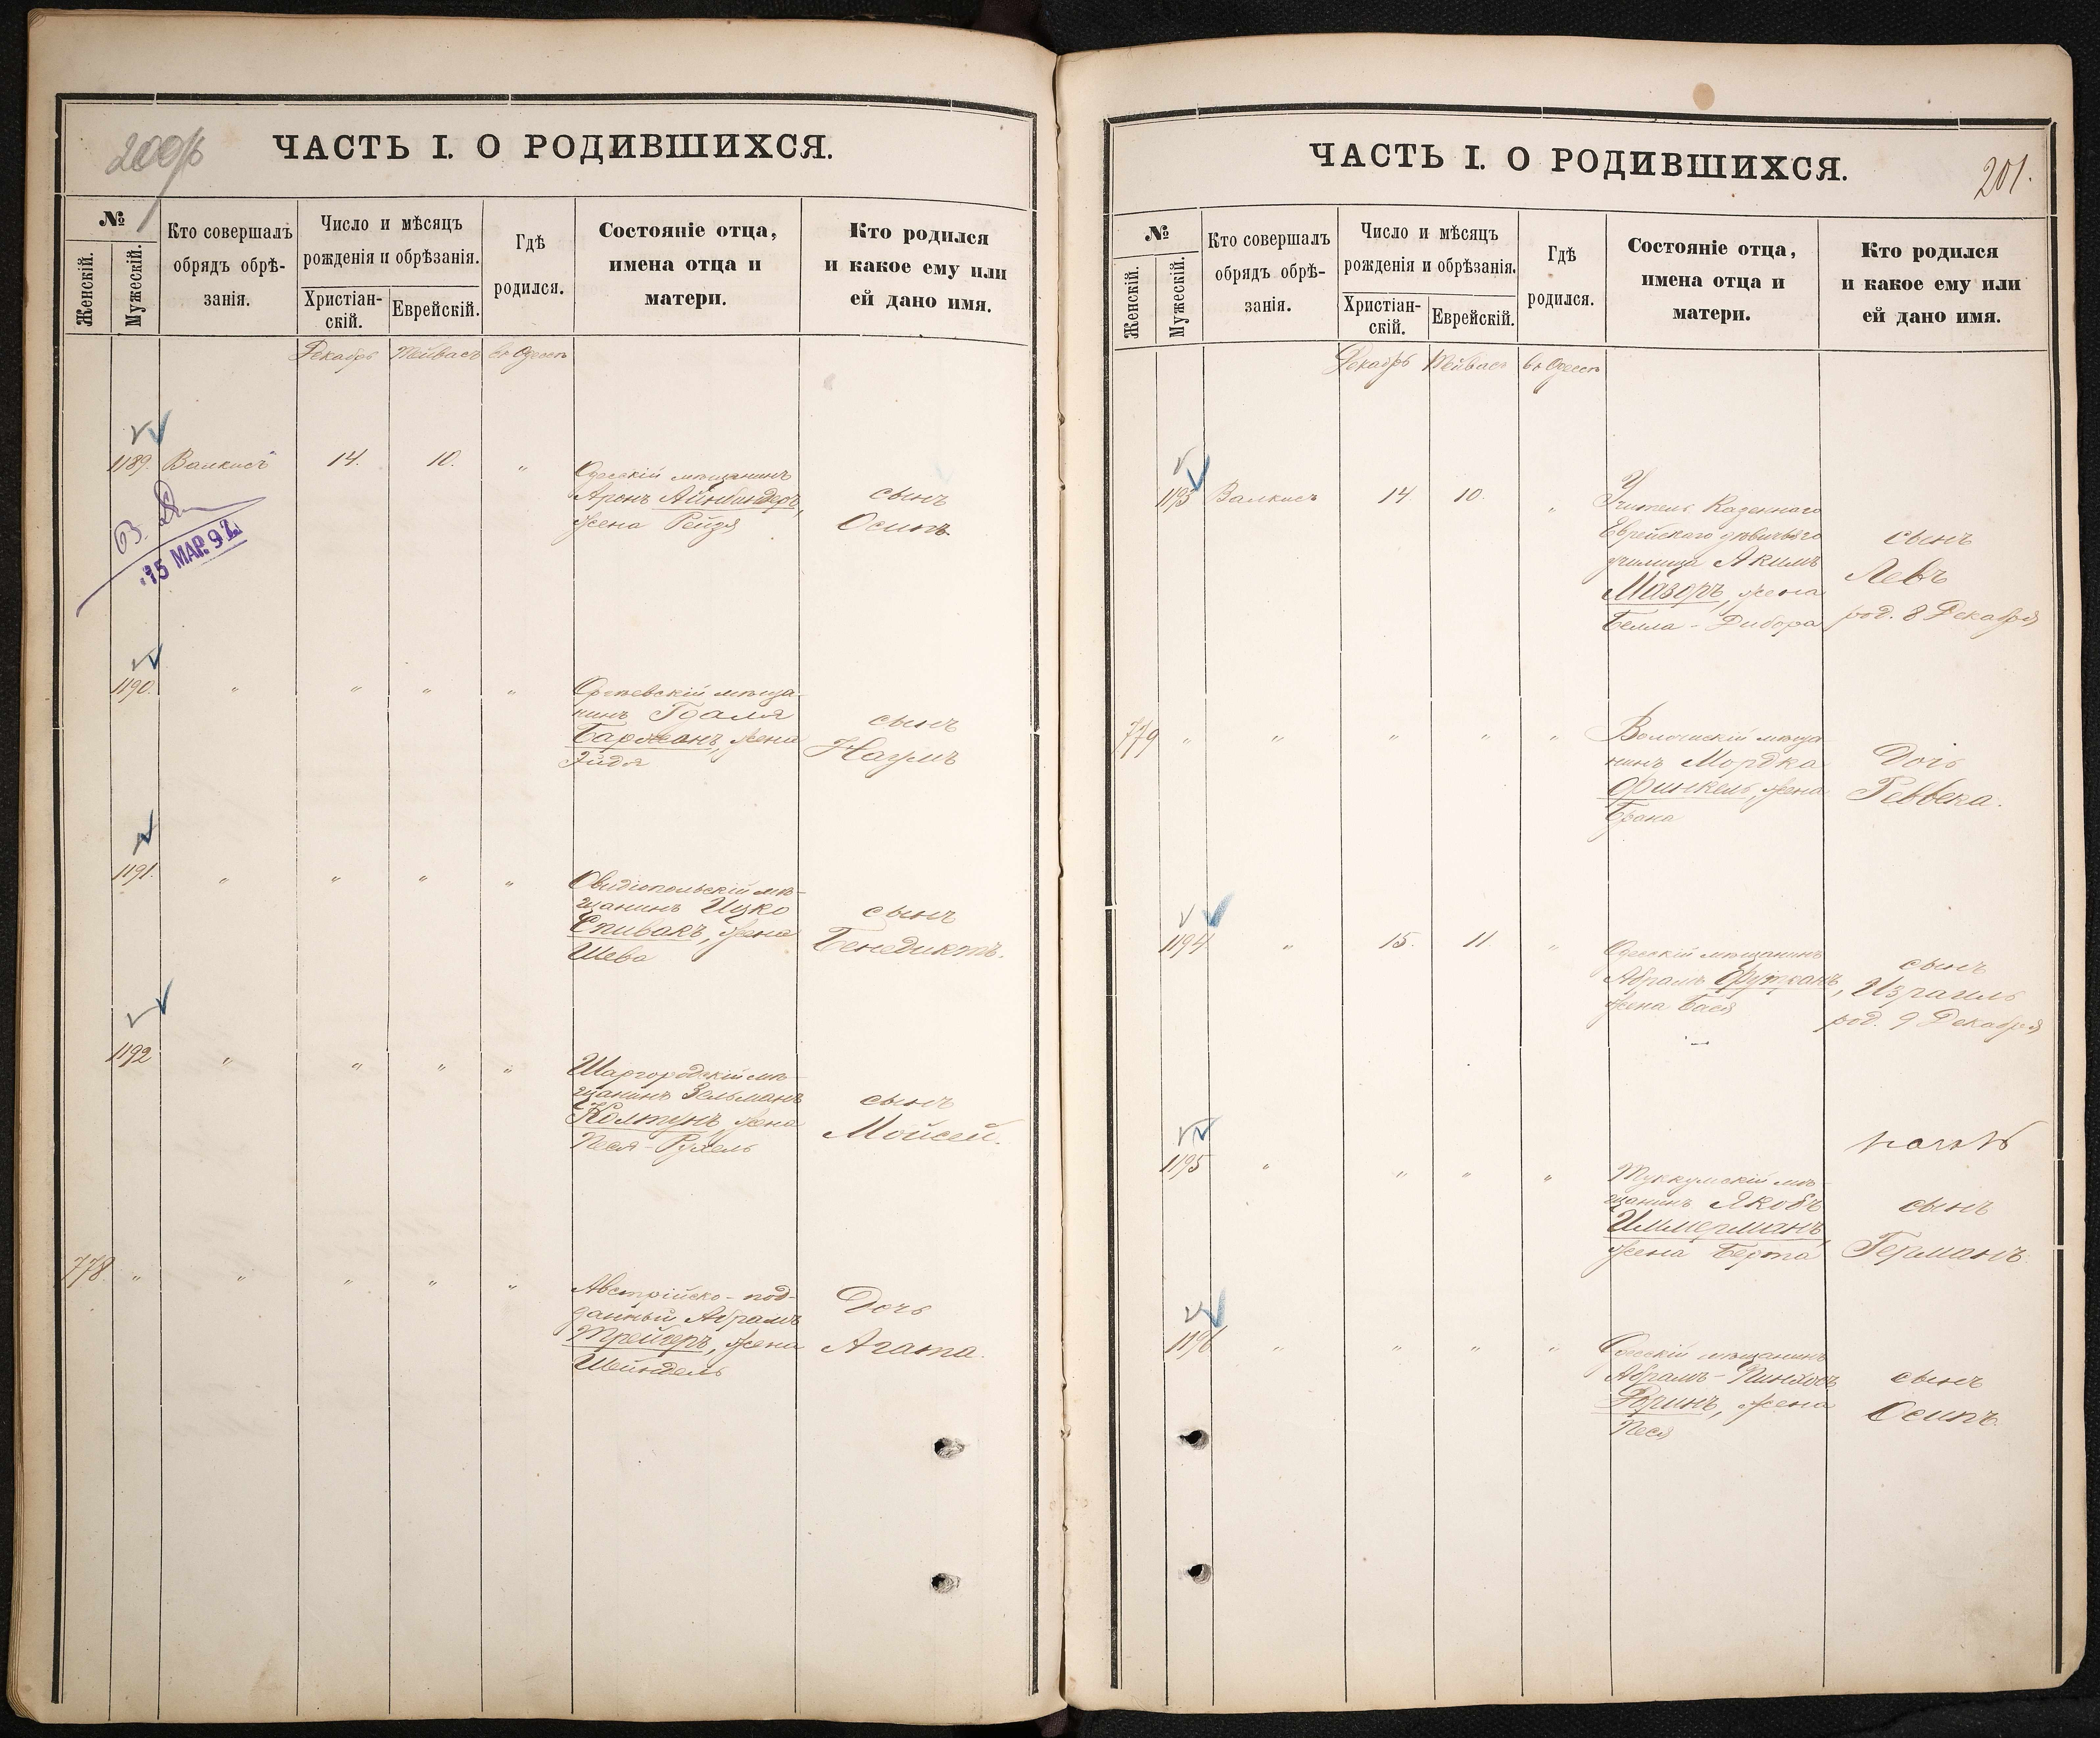 ЧАСТЬ I. О РОДИВШИХСЯ.
№
Женскій.
Мужескій.
Кто совершалъ
обрядъ обрѣ-
занія.
Число и мѣсяцъ
рожденія и обрѣзанія.
Христіан-
скій.
Еврейскій.
Гдѣ
родился.
Состояніе отца,
имена отца и
матери.
Кто родился
и какое ему или
ей дано имя.
Декабрь Тейвасъ въ Одессѣ
1189. Валкисъ 14. 10. "
Одесскій мѣщанинъ
Аронъ Айнбиндеръ,
жена Рейзя
сынъ
Осипъ
15 МАР. 92
1190. " " " "
мѣща-
нинъ Гдаля
жена
сынъ
Наумъ
1191. " " " "
Овидіопольскій мѣ-
щанинъ Ицко
Спивакъ, жена
Шева
сынъ
Бенедиктъ.
1192 " " " "
Шаргородскій мѣ-
щанинъ Зельманъ
Колтунъ, жена
Песя-Рухель
сынъ
Мойсей.
778 " " " " "
Австрійско-под-
данный Абрамъ
Трейгеръ, жена
Шейндель
Дочь
Агата.
ЧАСТЬ I. О РОДИВШИХСЯ.
201.
№
Женскій.
Мужескій.
Кто совершалъ
обрядъ обрѣ-
занія.
Число и мѣсяцъ
рожденія и обрѣзанія.
Христіан-
скій.
Еврейскій.
Гдѣ
родился.
Состояніе отца,
имена отца и
матери.
Кто родился
и какое ему или
ей дано имя.
Декабрь Тейвасъ въ Одессѣ
1193 Валкисъ 14 10. "
Учитель Казеннаго
Еврейскаго дѣвичьяго
училища Акимъ
Мазоръ, жена
Белла-Дибора
сынъ
Левъ
род. 8 Декабря
779 " " " " "
мѣща-
нинъ Мордка
Финкель, жена
Брана
Дочь
Реввека.
1194 " 15. 11 "
Одесскій мѣщанинъ
Абрамъ
жена Бася
сынъ
Израиль
род. 9 Декабря
1195 " " " "
Туккумскій мѣ-
щанинъ Якобъ
Иммерманъ,
жена Берта
сынъ
Германъ.
1196 " " " "
Одесскій мѣщанинъ
Абрамъ-Пинхосъ
жена
Песя
сынъ
Осипъ.